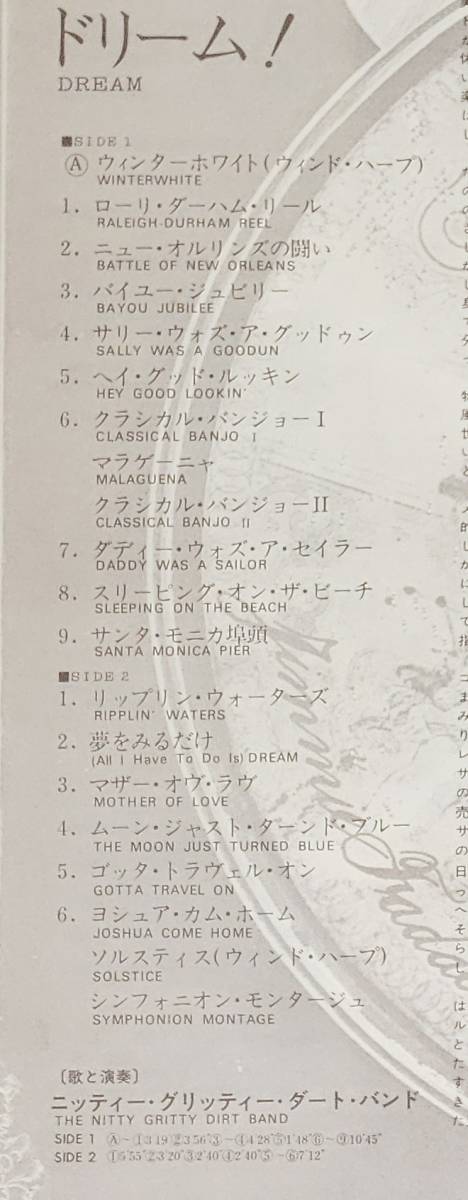 ドリーム!
DREAM
■SIDE 1
Ⓐ ウィンターホワイト(ウィンド・ハープ)
WINTERWHITE
1. ローリ・ダーハム・リール
RALEIGH-DURHAM REEL
2. ニュー・オルリンズの闘い
BATTLE OF NEW ORLEANS
3. バイユー・ジュビリー
BAYOU JUBILEE
4. サリー・ウォズ・ア・グッドゥン
SALLY WAS A GOODUN
5. ヘイ・グッド・ルッキン
HEY GOOD LOOKIN'
6. クラシカル・バンジョーI
CLASSICAL BANJO I
マラゲーニャ
MALAGUENA
クラシカル・バンジョーII
CLASSICAL BANJO II
7. ダディー・ウォズ・ア・セイラー
DADDY WAS A SAILOR
8. スリーピング・オン・ザ・ビーチ
SLEEPING ON THE BEACH
9. サンタ・モニカ埠頭
SANTA MONICA PIER
■SIDE 2
1. リップリン・ウォーターズ
RIPPLIN' WATERS
2. 夢をみるだけ
(All I Have To Do Is) DREAM
3. マザー・オヴ・ラヴ
MOTHER OF LOVE
4. ムーン・ジャスト・ターンド・ブルー
THE MOON JUST TURNED BLUE
5. ゴッタ・トラヴェル・オン
GOTTA TRAVEL ON
6. ヨシュア・カム・ホーム
JOSHUA COME HOME
ソルスティス(ウィンド・ハープ)
SOLSTICE
シンフォニオン・モンタージュ
SYMPHONION MONTAGE
〔歌と演奏〕
ニッティー・グリッティー・ダート・バンド
THE NITTY GRITTY DIRT BAND
SIDE 1 Ⓐ~①3'19"②3'56"③~④4'28"⑤1'48"⑥~⑨10'45"
SIDE 2 ①5'55"②3'20"③2'40"④2'40"⑤~⑥7'12"